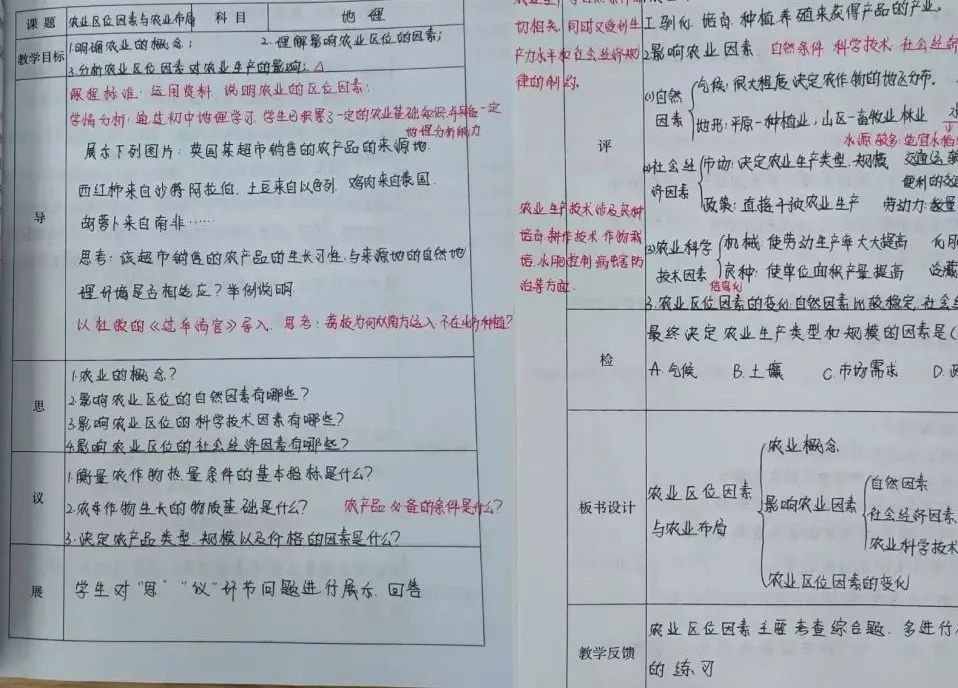 课题 农业区位因素与农业布局 科目 地理
教学目标 1.明确农业的概念; 2.理解影响农业区位的因素;
3.分析农业区位因素对农业生产的影响; △
课程标准: 运用资料 说明农业的区位因素;
学情分析: 通过初中地理学习 学生已积累了一定的农业基础知识并具备一定
地理分析能力
导
展示下列图片: 英国某超市销售的农产品的来源地.
西红柿来自沙特阿拉伯. 土豆来自以色列. 鸡肉来自泰国.
胡萝卜来自南非……
思考: 该超市销售的农产品的生长习性,与来源地的自然地
理环境是否相适应? 举例说明.
以杜牧的《过华清宫》导入. 思考: 荔枝为何从南方运入 不在种植?
思
1.农业的概念?
2.影响农业区位的自然因素有哪些?
3.影响农业区位的科学技术因素有哪些?
4.影响农业区位的社会经济因素有哪些?
议
1.衡量农作物热量条件的基本指标是什么?
2.农作物生长的物质基础是什么? 农产品必备的条件是什么?
3.决定农产品类型.规模以及价格的因素是什么?
展
学生对"思""议"环节问题进行展示.回答
切相关,同时又受到生
产力水平和社会经济规
律的制约.
农业生产技术涉及良种
培育.耕作技术.作物栽
培.水肥控制.病虫害防
治等方面.
评
培育.种植养殖来获得产品的产业.
2.影响农业因素 自然条件 科学技术 社会经济
(1)自然因素
气候: 很大程度决定农作物的地区分布.
地形: 平原—种植业; 山区—畜牧业.林业
水源较多: 适宜水稻
社会经济因素
市场: 决定农业生产类型.规模 交通运输
便利的交
政策: 直接干预农业生产 劳动力: 数量
(3)农业科学技术因素
机械: 使劳动生产率大大提高 化肥
良种: 使单位面积产量提高
3.农业区位因素的变化 自然因素比较稳定,社会经
检
最终决定农业生产类型和规模的因素是(
A.气候 B.土壤 C.市场需求 D.政
板书设计
农业区位因素与农业布局
农业概念
影响农业因素
自然因素
社会经济因素
农业科学技术
农业区位因素的变化
教学反馈
农业区位因素主要考查综合题.多进行
的练习